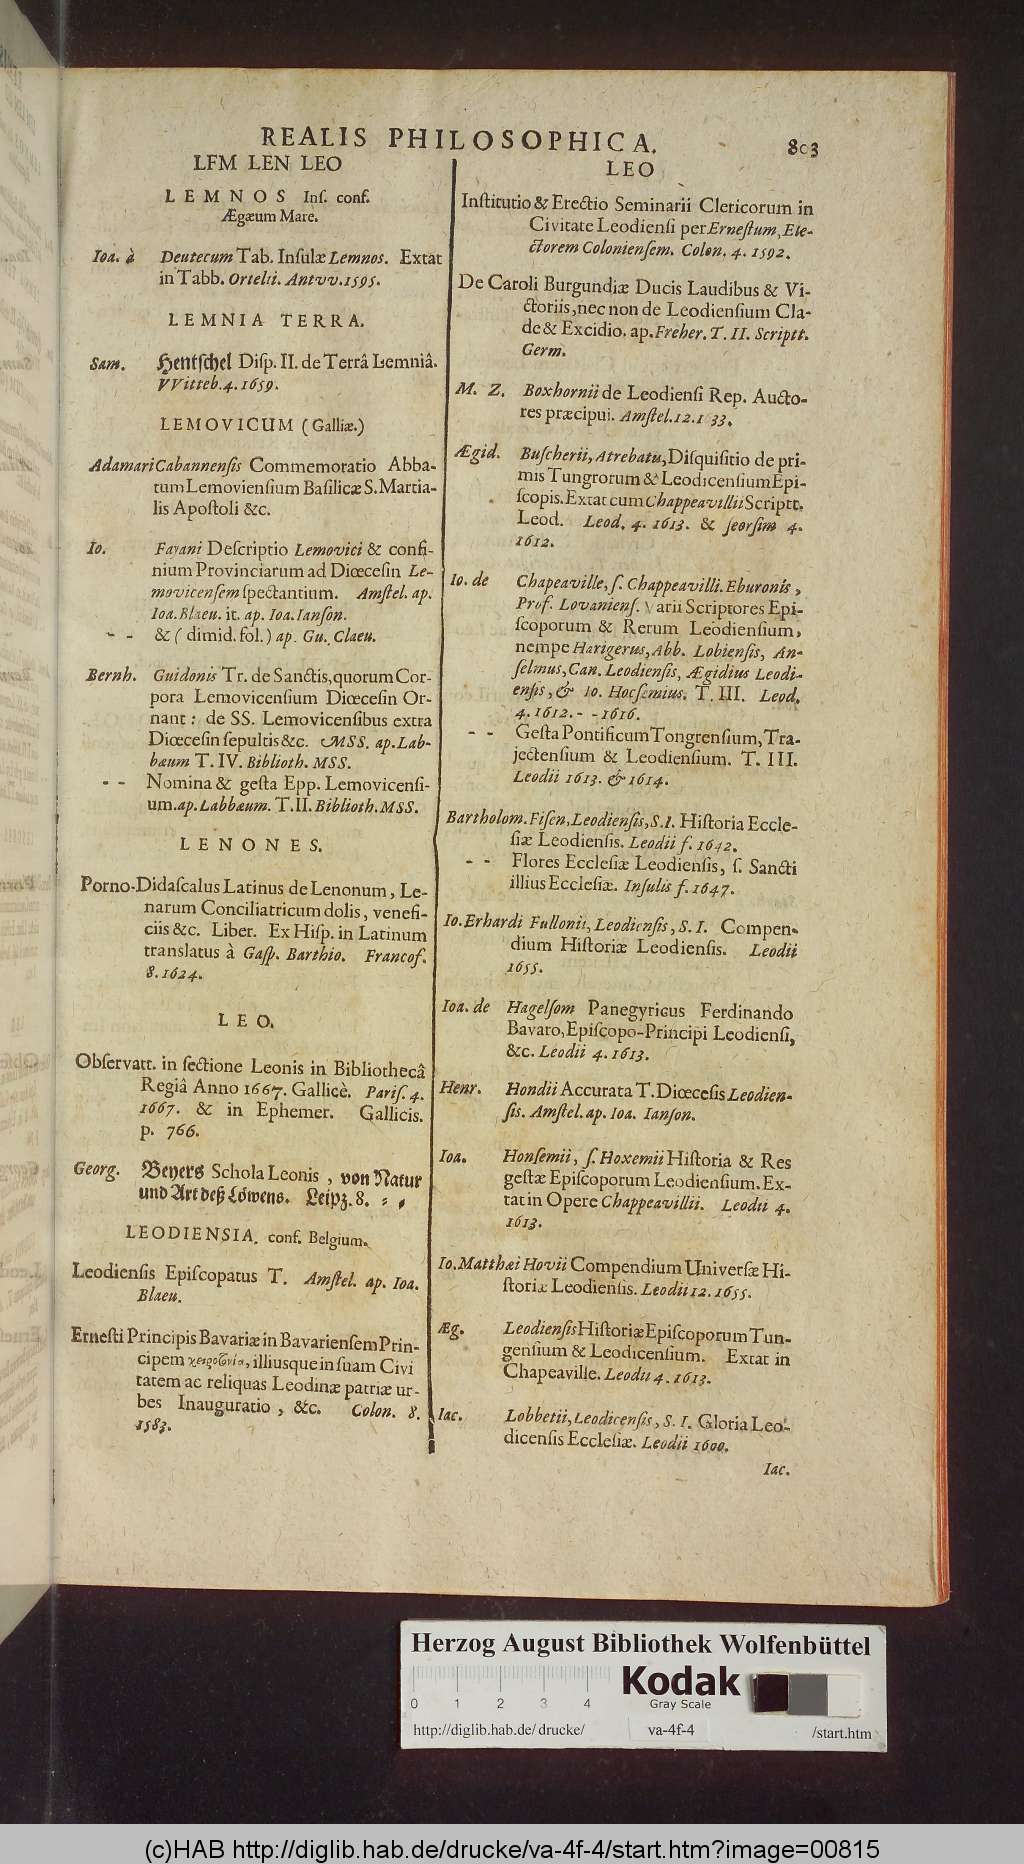 REALIS PHILOSOPHICA. 803
LFM LEN LEO
LEMNOS Inſ. conf.
Ægæum Mare.
Ioa. à Deutecum Tab. Inſulæ Lemnos. Extat
in Tabb. Ortelii. Antvv. 1595.
LEMNIA TERRA.
Sam. Hentſchel Diſp. II. de Terrâ Lemniâ.
VVitteb. 4. 1659.
LEMOVICUM (Galliæ.)
Adamari Cabannenſis Commemoratio Abba-
tum Lemovienſium Baſilicæ S. Martia-
lis Apoſtoli &c.
Io. Fayani Deſcriptio Lemovici & confi-
nium Provinciarum ad Diœceſin Le-
movicenſem ſpectantium. Amſtel. ap.
Ioa. Blaeu. it. ap. Ioa. Ianſon.
- - & ( dimid. fol. ) ap. Gu. Claeu.
Bernh. Guidonis Tr. de Sanctis, quorum Cor-
pora Lemovicenſium Diœceſin Or-
nant : de SS. Lemovicenſibus extra
Diœceſin ſepultis &c. MSS. ap. Lab-
bæum T. IV. Biblioth. MSS.
- - Nomina & geſta Epp. Lemovicenſi-
um. ap. Labbæum. T. II. Biblioth. MSS.
LENONES.
Porno-Didaſcalus Latinus de Lenonum, Le-
narum Conciliatricum dolis, venefi-
ciis &c. Liber. Ex Hiſp. in Latinum
translatus à Gaſp. Barthio. Francof.
8. 1624.
LEO.
Obſervatt. in ſectione Leonis in Bibliothecâ
Regiâ Anno 1667. Gallicè. Pariſ. 4.
1667. & in Ephemer. Gallicis.
p. 766.
Georg. Beyers Schola Leonis, von Natur
und Art deß Löwens. Leipz. 8. - -
LEODIENSIA. conf. Belgium.
Leodienſis Epiſcopatus T. Amſtel. ap. Ioa.
Blaeu.
Erneſti Principis Bavariæ in Bavarienſem Prin-
cipem χειροτονία, illiusque in ſuam Civi
tatem ac reliquas Leodinæ patriæ ur-
bes Inauguratio, &c. Colon. 8.
1583.
LEO
Inſtitutio & Erectio Seminarii Clericorum in
Civitate Leodienſi per Erneſtum, Ele-
ctorem Colonienſem. Colon. 4. 1592.
De Caroli Burgundiæ Ducis Laudibus & Vi-
ctoriis, nec non de Leodienſium Cla-
de & Excidio. ap. Freher. T. II. Scriptt.
Germ.
M. Z. Boxhornii de Leodienſi Rep. Aucto-
res præcipui. Amſtel. 12. 1 33.
Ægid. Buſcherii, Atrebatu, Diſquiſitio de pri-
mis Tungrorum & Leodicenſium Epi-
ſcopis. Extat cum Chappeavillii Scriptt.
Leod. Leod. 4. 1613. & ſeorſim 4.
1612.
Io. de Chapeaville, ſ. Chappeavilli. Eburonis,
Prof. Lovanienſ. Varii Scriptores Epi-
ſcoporum & Rerum Leodienſium,
nempe Harigerus, Abb. Lobienſis, An-
ſelmus, Can. Leodienſis, Ægidius Leodi-
enſis, & Io. Hocſemius. T. III. Leod.
4. 1612. - - 1616.
- - Geſta Pontificum Tongrenſium, Tra-
jectenſium & Leodienſium. T. III.
Leodii 1613. & 1614.
Bartholom. Fiſen, Leodienſis, S. I. Hiſtoria Eccle-
ſiæ Leodienſis. Leodii f. 1642.
- - Flores Eccleſiæ Leodienſis, ſ. Sancti
illius Eccleſiæ. Inſulis f. 1647.
Io. Erhardi Fullonii, Leodienſis, S. I. Compen-
dium Hiſtoriæ Leodienſis. Leodii
1655.
Ioa. de Hagelſom Panegyricus Ferdinando
Bavaro, Epiſcopo-Principi Leodienſi,
&c. Leodii 4. 1613.
Henr. Hondii Accurata T. Diœceſis Leodien-
ſis. Amſtel. ap. Ioa. Ianſon.
Ioa. Honſemii, ſ. Hoxemii Hiſtoria & Res
geſtæ Epiſcoporum Leodienſium. Ex-
tat in Opere Chappeavillii. Leodii 4.
1613.
Io. Matthæi Hovii Compendium Univerſæ Hi-
ſtoriæ Leodienſis. Leodii 12. 1655.
Æg. Leodienſis Hiſtoriæ Epiſcoporum Tun-
genſium & Leodicenſium. Extat in
Chapeaville. Leodii 4. 1613.
Iac. Lobbetii, Leodicenſis, S. I. Gloria Leo-
dicenſis Eccleſiæ. Leodii 1600.
Iac.
Herzog August Bibliothek Wolfenbüttel
Kodak
Gray Scale
0 1 2 3 4
http://diglib.hab.de/drucke/ va-4f-4 /start.htm
(c)HAB http://diglib.hab.de/drucke/va-4f-4/start.htm?image=00815